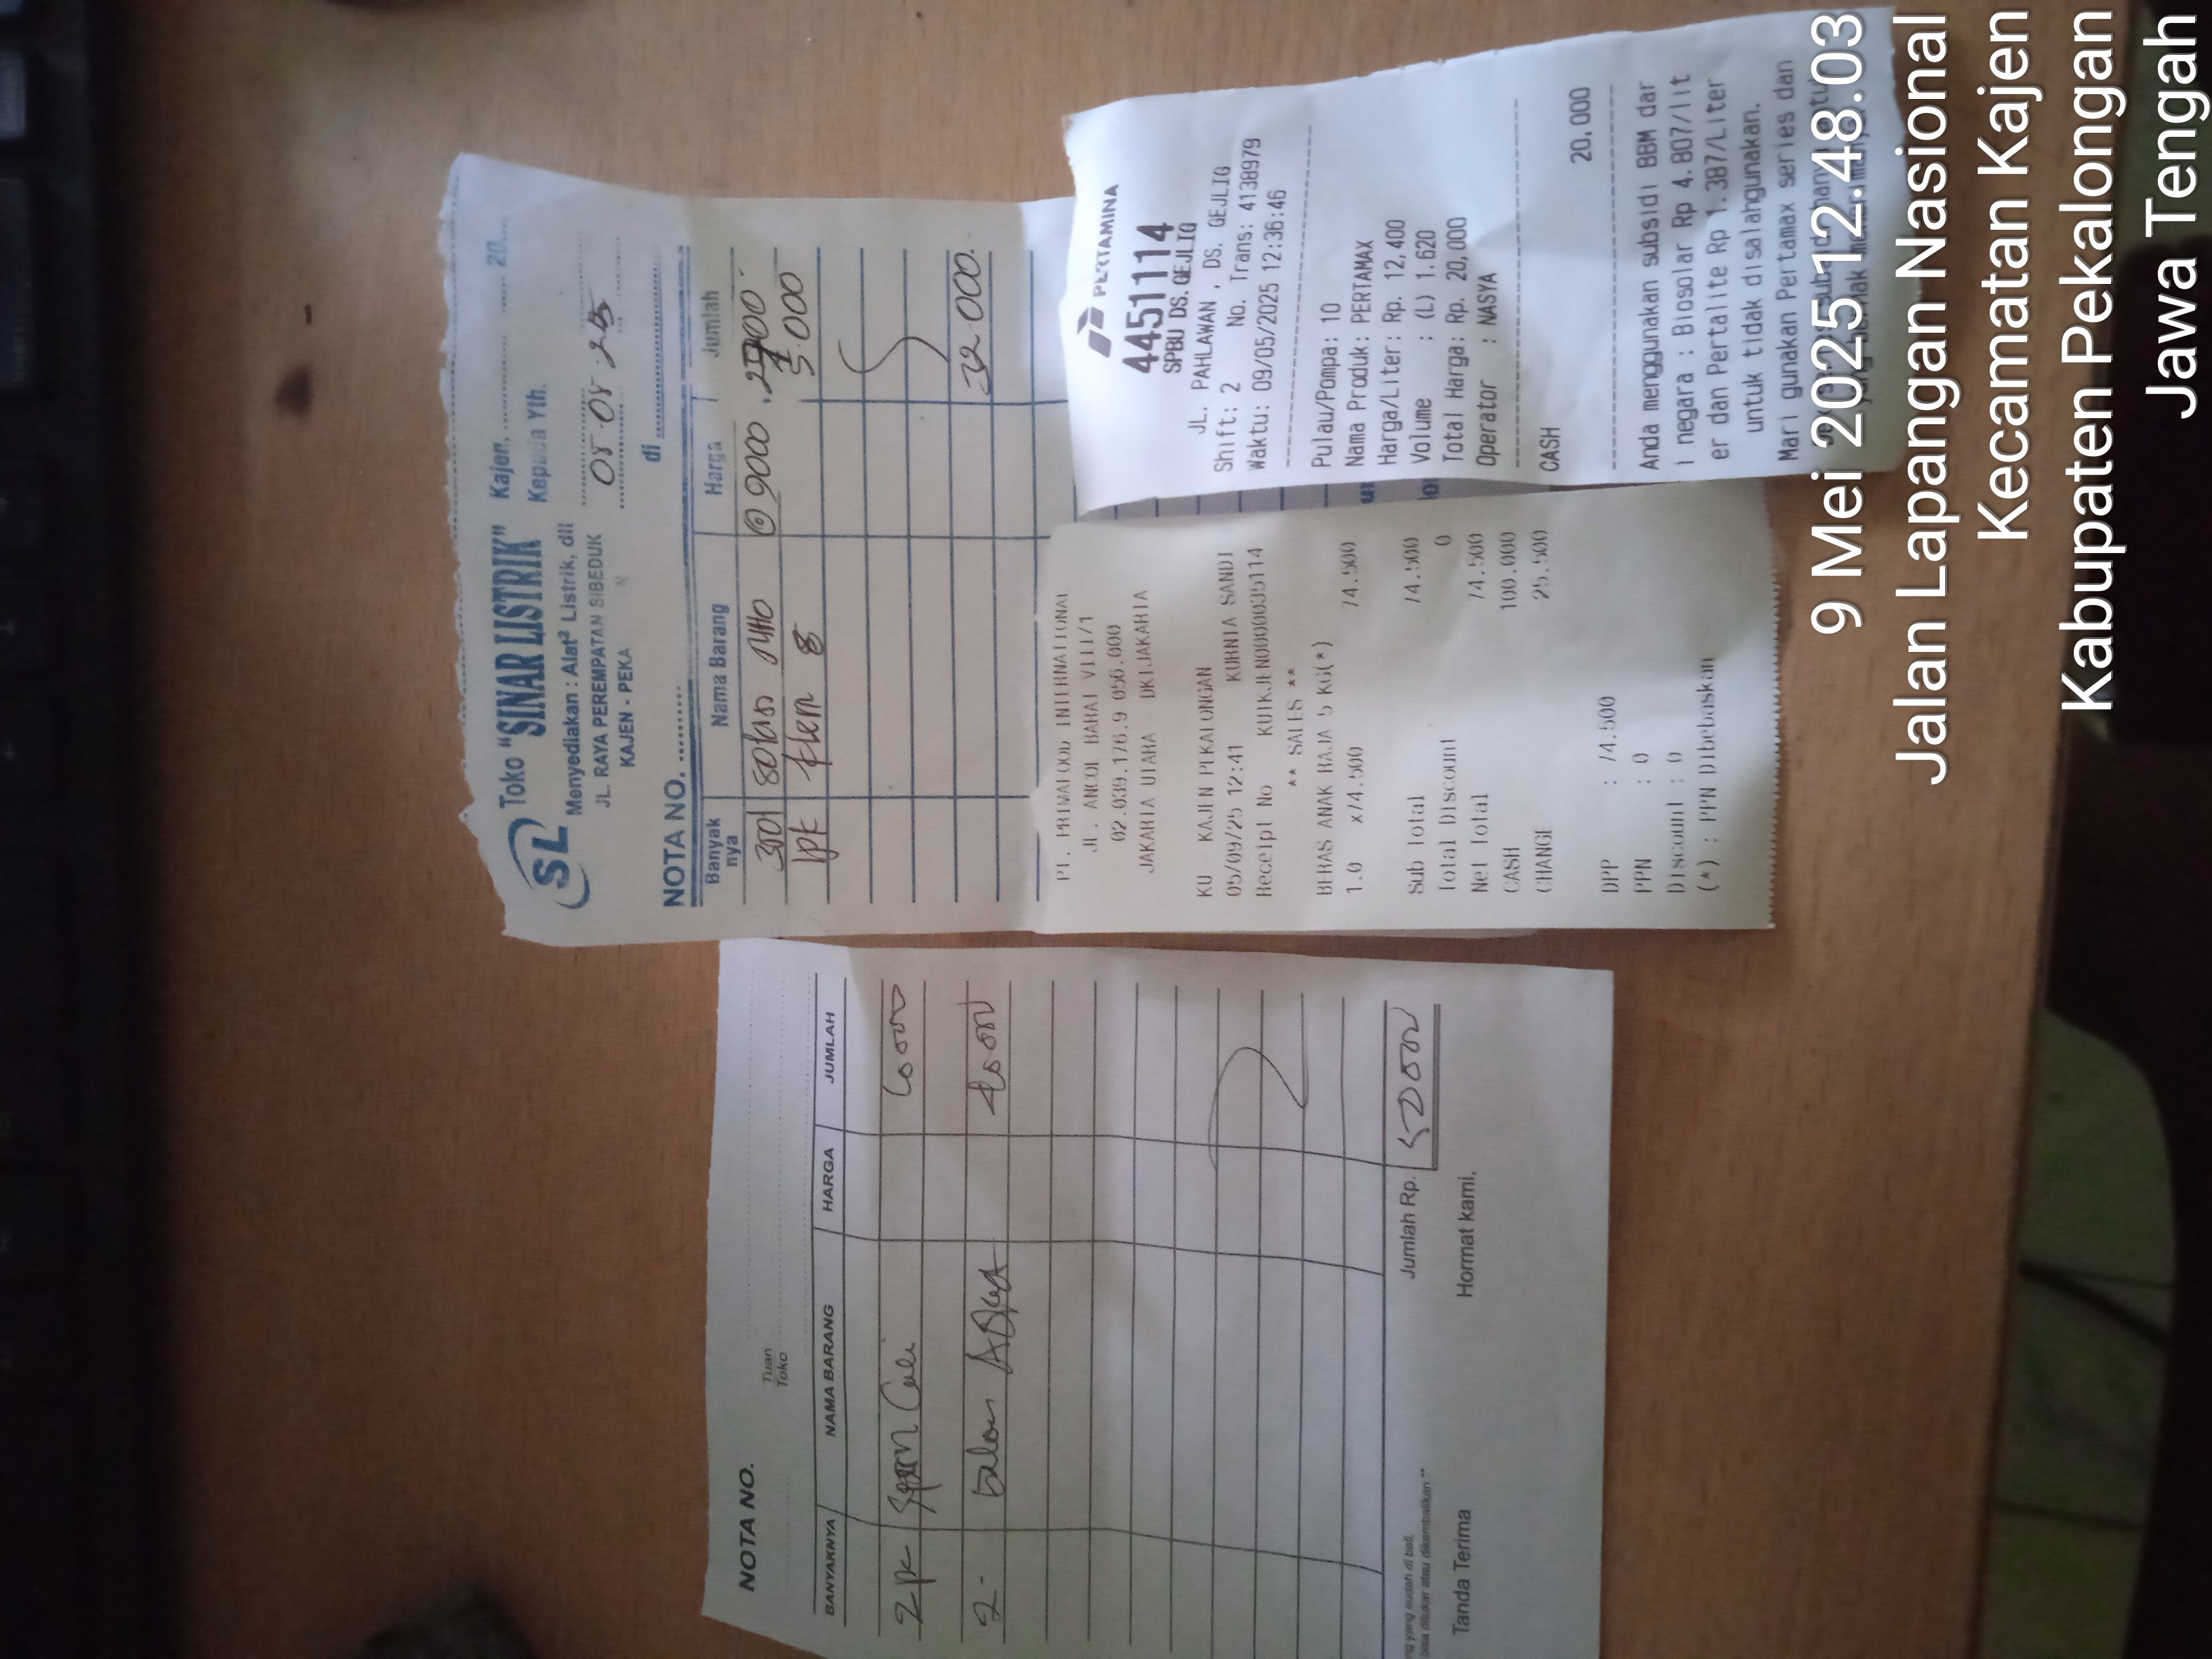 NOTA NO.
Tuan
Toko
BANYAKNYA NAMA BARANG HARGA JUMLAH
2 pc
2 - AQUA
Jumlah Rp. 50000
ng yang sudah di beli,
bisa ditukar atau dikembalikan **
Tanda Terima Hormat kami,
SL
Toko "SINAR LISTRIK"
Menyediakan : Alat² Listrik, dll
JL. RAYA PEREMPATAN SIBEDUK
KAJEN - PEKA N
Kajen, 20
Kepada Yth.
di
NOTA NO.
Banyak nya Nama Barang Harga Jumlah
@ 9000
1pk klem 8 5.000
32.000.
PT. PRIMAFOOD INTERNATIONAL
JL. ANCOL BARAT VIII/1
02.039.176.9 056.000
JAKARTA UTARA DKI JAKARTA
KU KAJEN PEKALONGAN
05/09/25 12:41 KURNIA SANDI
Receipt No KUIKJEN0000035114
** SALES **
BERAS ANAK RAJA 5 KG(*)
1.0 x74.500 74.500
Sub Total 74.500
Total Discount 0
Net Total 74.500
CASH 100.000
CHANGE 25.500
DPP : 74.500
PPN : 0
Discount : 0
(*) : PPN Dibebaskan
PERTAMINA
4451114
SPBU DS.GEJLIG
JL. PAHLAWAN , DS. GEJLIG
Shift: 2 No. Trans: 4138979
Waktu: 09/05/2025 12:36:46
Pulau/Pompa: 10
Nama Produk: PERTAMAX
Harga/Liter: Rp. 12,400
Volume : (L) 1.620
Total Harga: Rp. 20,000
Operator : NASYA
CASH
20,000
Anda menggunakan subsidi BBM dar
i negara : Biosolar Rp 4.807/lit
er dan Pertalite Rp 1.387/Liter
untuk tidak disalahgunakan.
Mari gunakan Pertamax series dan
9 Mei 2025 12.48.03
Jalan Lapangan Nasional
Kecamatan Kajen
Kabupaten Pekalongan
Jawa Tengah